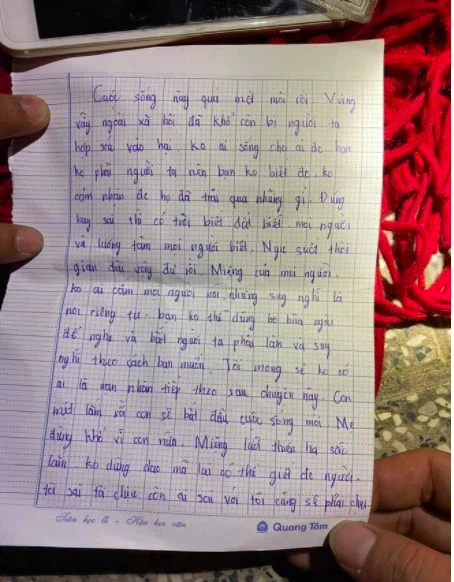 Cuộc sống này quá mệt mỏi rồi Vùng
vẫy ngoài xã hội đã khổ còn bị người ta
hớp sai vào hại. ko ai sống cho ai để bạn
ko phải người ta nên bạn ko biết đc, ko
cảm nhận đc họ đã trải qua những gì. Đúng
hay sai thì có trời biết đất biết mọi người
và lương tâm mọi người biết. Ngu suốt thời
gian dài vậy đủ rồi. Miệng của mọi người,
ko ai cấm mọi người nói, nhưng suy nghĩ là
nơi riêng tư. bạn ko thể dùng bố bữa ngài
để nghĩ và bắt người ta phải làm và suy
nghĩ theo cách bạn muốn. Tôi mong sẽ ko có
ai là nạn nhân tiếp theo sau chuyện này. Con
mệt lắm rồi con sẽ bắt đầu cuộc sống mới. Mẹ
đừng khổ vì con nữa. Miệng lưỡi thiên hạ sắc
lắm. ko dùng dao mà lại có thể giết đc người.
tôi sai tôi chịu còn ai sai với tôi cũng sẽ phải chịu
Tiên học lễ - Hậu học văn
Quang Tâm